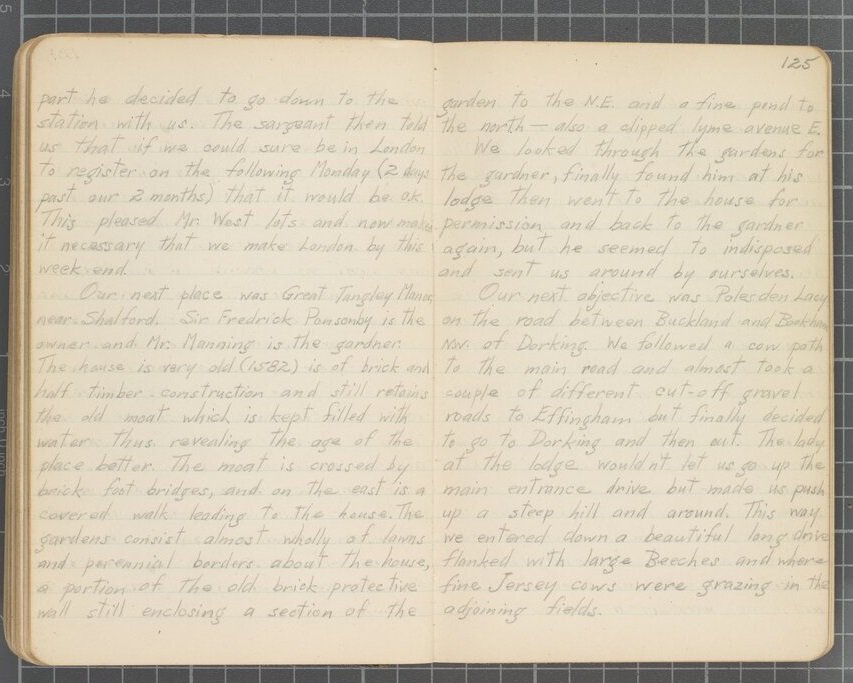 part he decided to go down to the
station with us. The sargeant then told
us that if we could sure be in London
to register on the following Monday (2 days
past our 2 months) that it would be o.k.
This pleased Mr. West lots and now makes
it necessary that we make London by this
week-end.
Our next place was Great Tangley Manor,
near Shalford. Sir Fredrick Ponsonby is the
owner and Mr. Manning is the gardner.
The house is very old (1582) is of brick and
half timber construction and still retains
the old moat which is kept filled with
water thus revealing the age of the
place better. The moat is crossed by
brick foot bridges, and on the east is a
covered walk leading to the house. The
gardens consist almost wholly of lawns
and perennial borders about the house,
a portion of the old brick protective
wall still enclosing a section of the
125
garden to the N.E. and a fine pond to
the north — also a clipped lyme avenue E.
We looked through the gardens for
the gardner, finally found him at his
lodge then went to the house for
permission and back to the gardner
again, but he seemed to indisposed
and sent us around by ourselves.
Our next objective was Polesden Lacy
on the road between Buckland and Bookham
N.W. of Dorking. We followed a cow path
to the main road and almost took a
couple of different cut-off gravel
roads to Effingham but finally decided
to go to Dorking and then out. The lady
at the lodge wouldn't let us go up the
main entrance drive but made us push
up a steep hill and around. This way
we entered down a beautiful long drive
flanked with large Beeches and where
fine Jersey cows were grazing in the
adjoining fields.